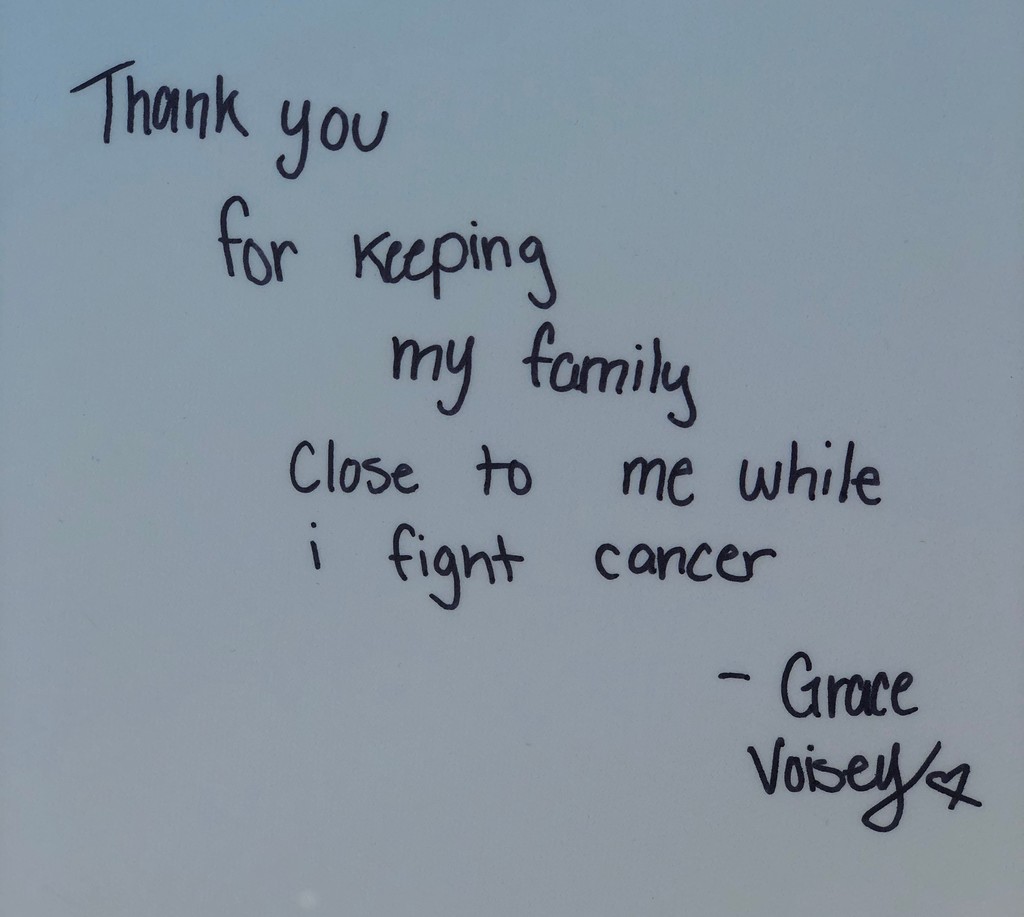 Thank you
for keeping
my family
Close to me while
i fight cancer
- Grace
Voisey